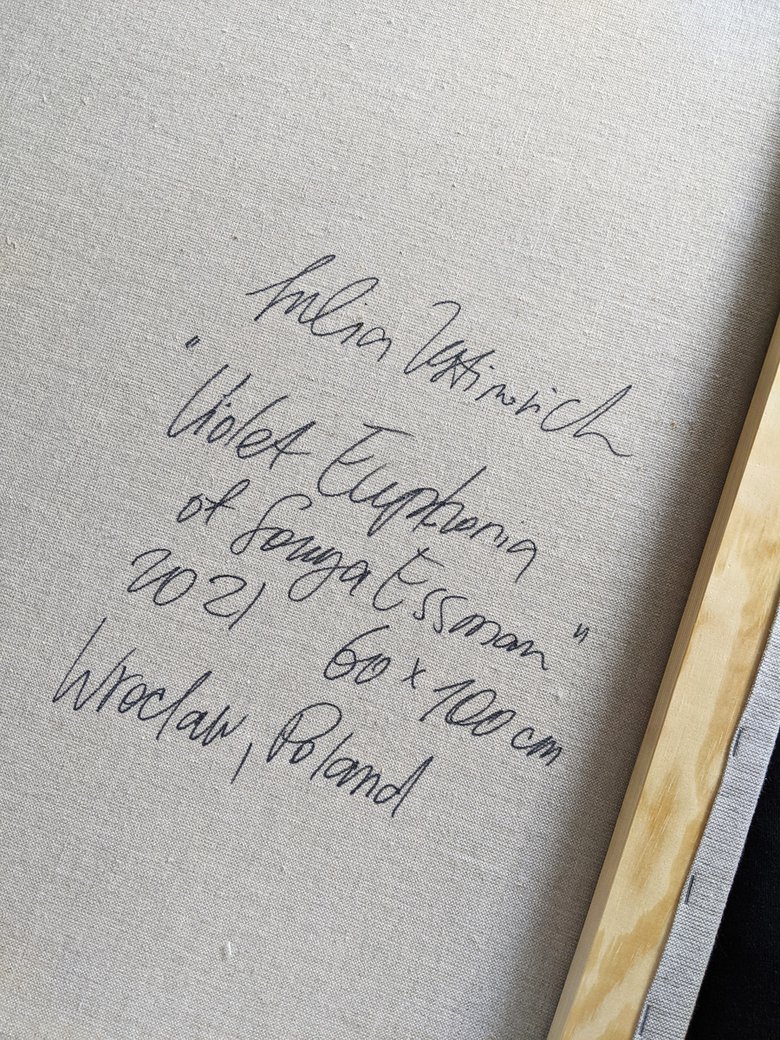 Julia Ustinovich
"Violet Euphoria
of Sonya Essman"
2021 60 x 100 cm
Wroclaw, Poland